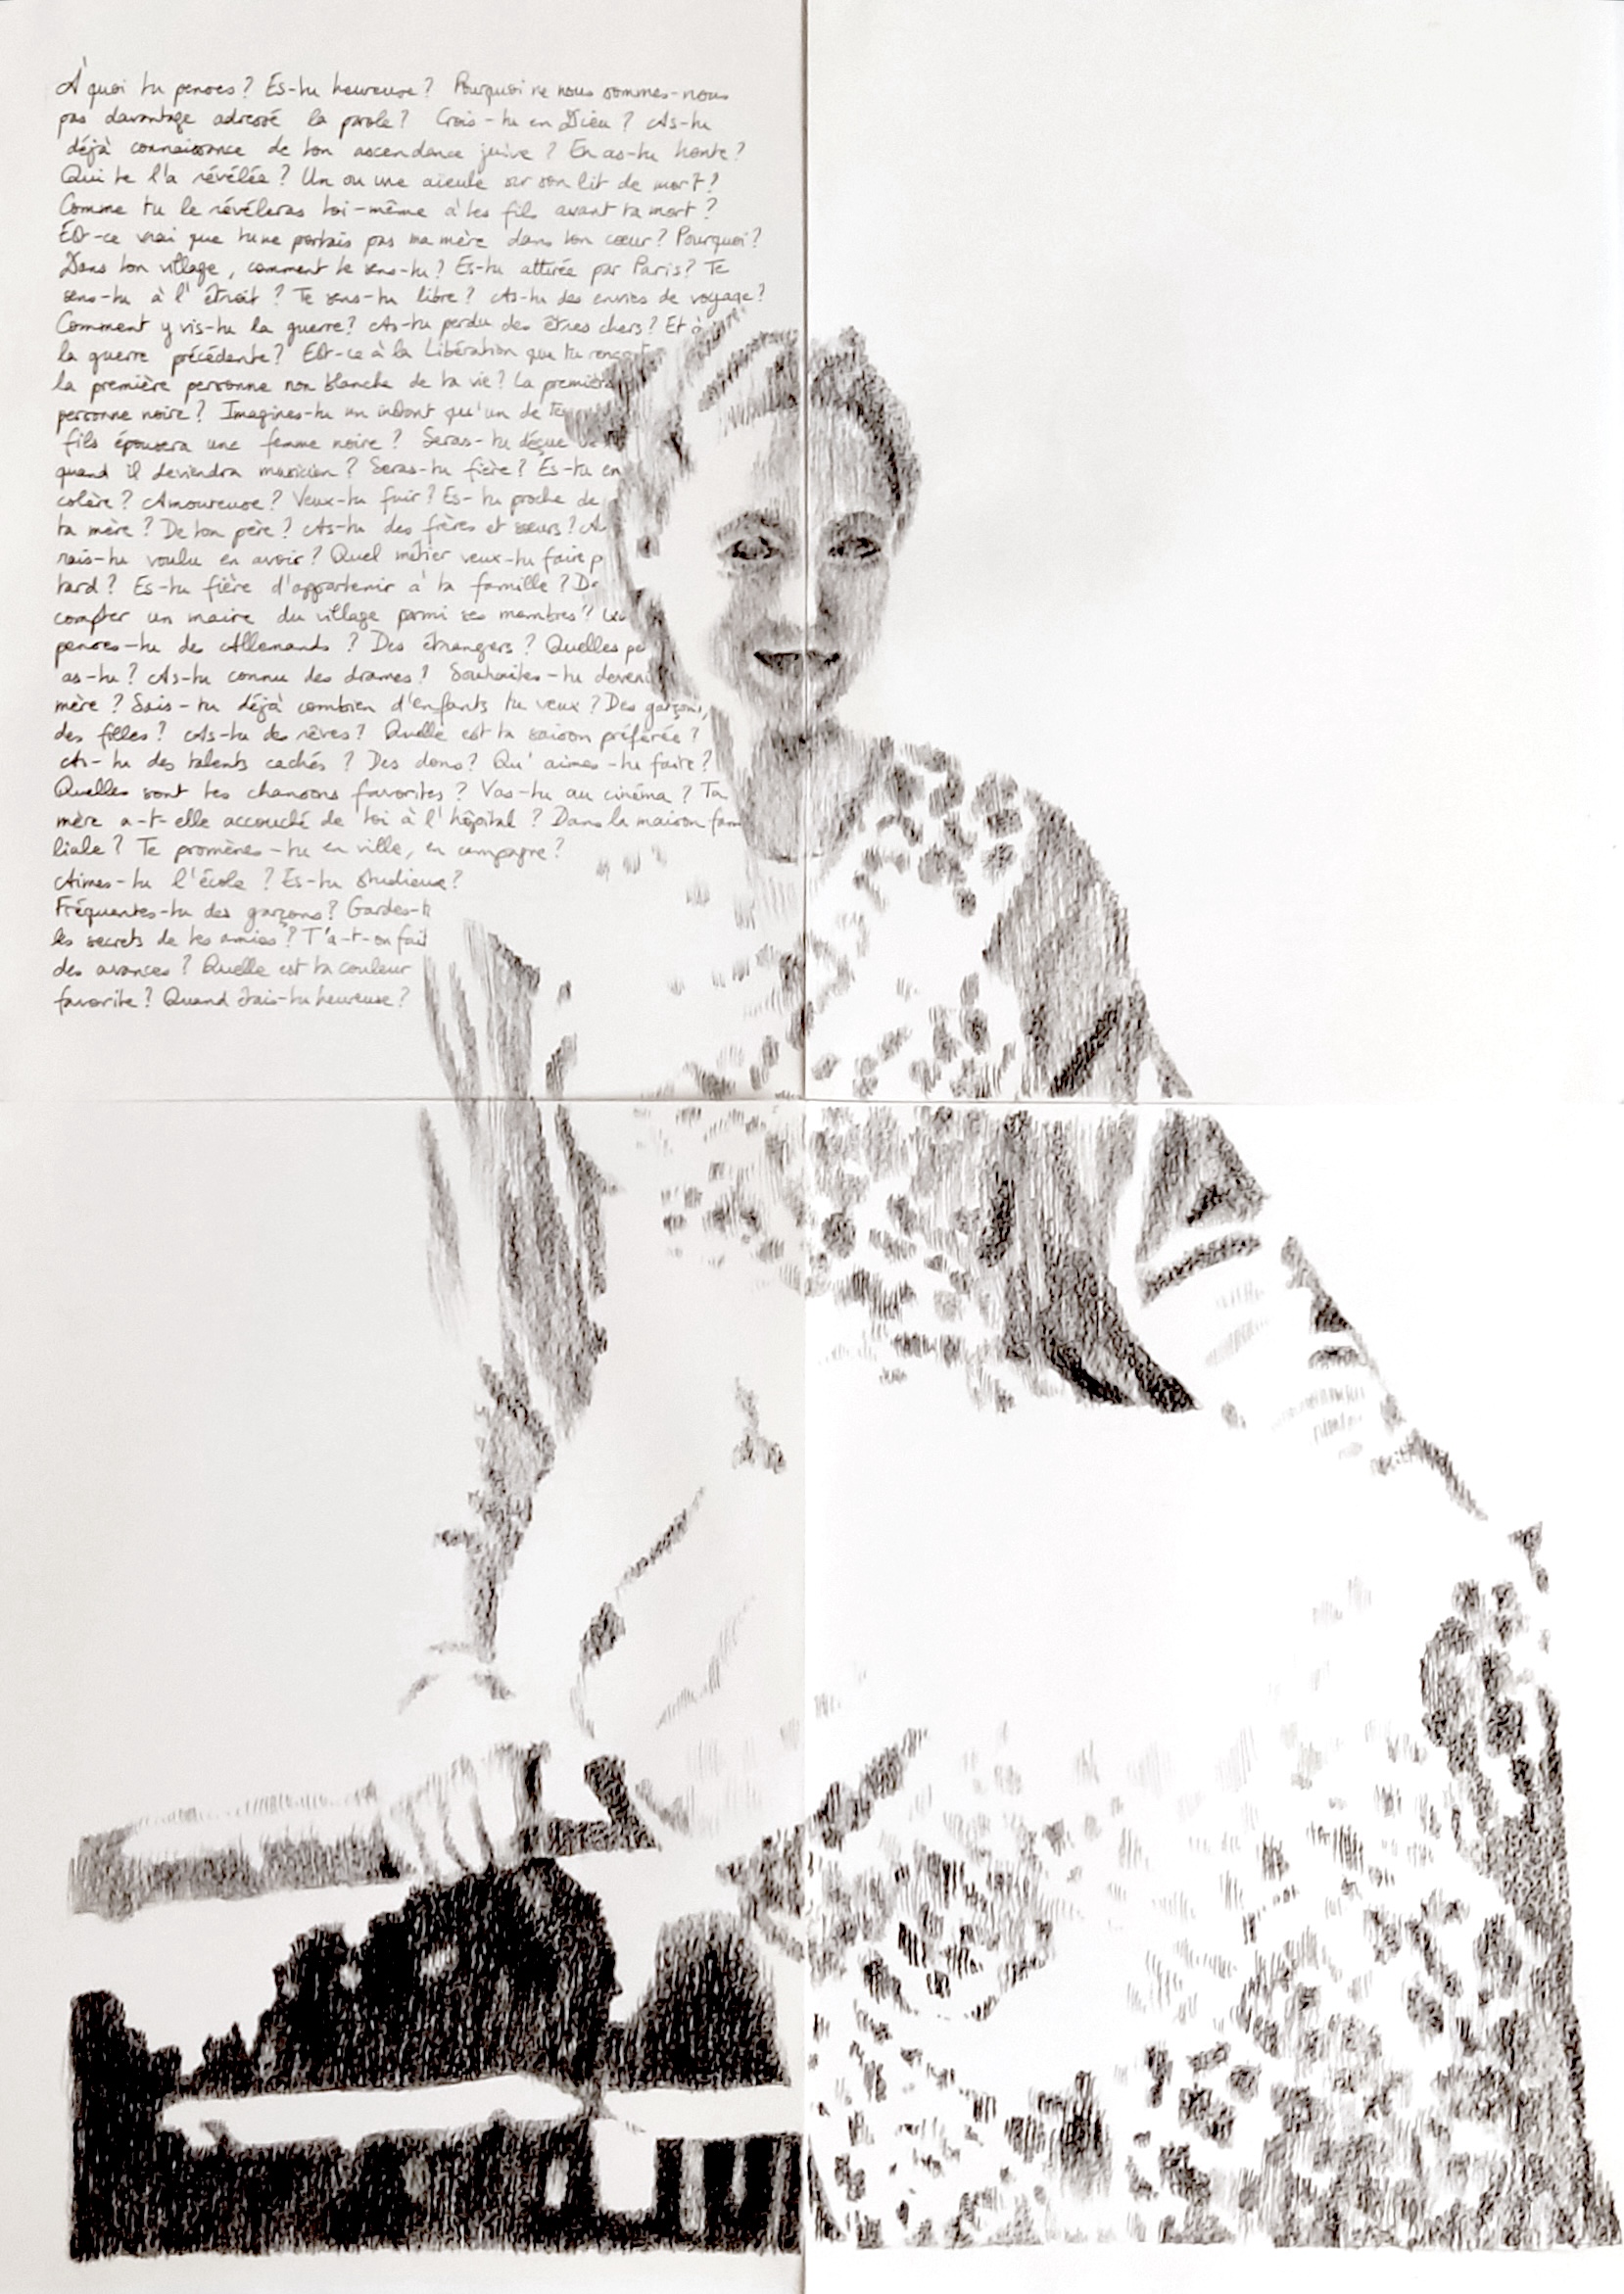 À quoi tu penses ? Es-tu heureuse ? Pourquoi ne nous sommes-nous
pas davantage adressé la parole ? Crois-tu en Dieu ? As-tu
déjà connaissance de ton ascendance juive ? En as-tu honte ?
Qui te l'a révélée ? Un ou une aïeule sur son lit de mort ?
Comme tu le révéleras toi-même à tes fils avant ta mort ?
Est-ce vrai que tu ne portais pas ma mère dans ton cœur ? Pourquoi ?
Dans ton village, comment te sens-tu ? Es-tu attirée par Paris ? Te
sens-tu à l'étroit ? Te sens-tu libre ? As-tu des envies de voyage ?
Comment y vis-tu la guerre ? As-tu perdu des êtres chers ? Et à
la guerre précédente ? Est-ce à la Libération que tu
la première personne non blanche de ta vie ? La première
personne noire ? Imagines-tu un instant qu'un de
fils épousera une femme noire ? Seras-tu déçue
quand il deviendra musicien ? Seras-tu fière ? Es-tu en
colère ? Amoureuse ? Veux-tu fuir ? Es-tu proche de
ta mère ? De ton père ? As-tu des frères et sœurs ? A
rais-tu voulu en avoir ? Quel métier veux-tu faire p
tard ? Es-tu fière d'appartenir à ta famille ? De
compter un maire du village parmi ses membres ?
penses-tu des Allemands ? Des étrangers ? Quelles pe
as-tu ? As-tu connu des drames ? Souhaites-tu deveni
mère ? Sais-tu déjà combien d'enfants tu veux ? Des garçons,
des filles ? As-tu des rêves ? Quelle est ta saison préférée ?
As-tu des talents cachés ? Des dons ? Qu'aimes-tu faire ?
Quelles sont tes chansons favorites ? Vas-tu au cinéma ? Ta
mère a-t-elle accouché de toi à l'hôpital ? Dans la maison fam
liale ? Te promènes-tu en ville, en campagne ?
Aimes-tu l'école ? Es-tu studieuse ?
Fréquentes-tu des garçons ? Gardes-t
les secrets de tes amies ? T'a-t-on fait
des avances ? Quelle est ta couleur
favorite ? Quand étais-tu heureuse ?